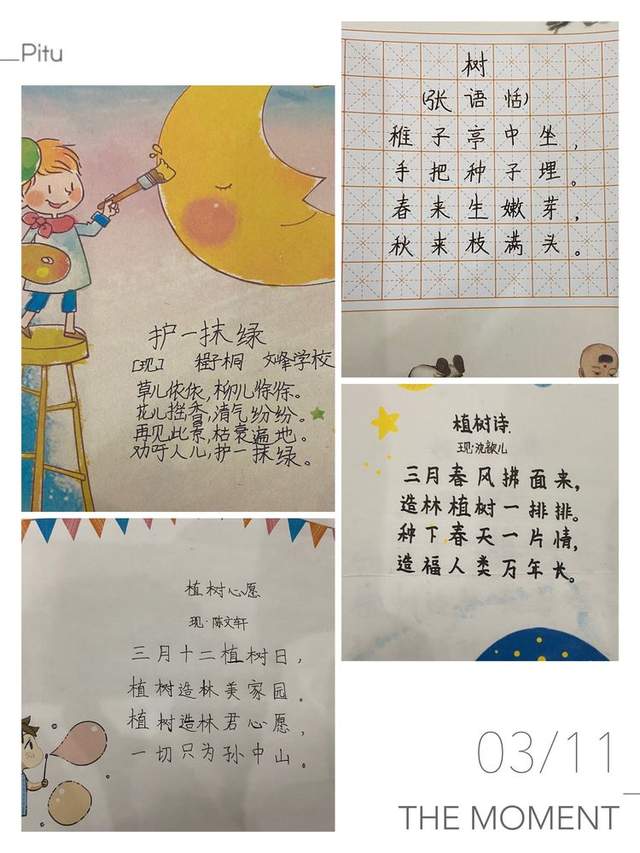 Pitu
护一抹绿
[现] 程子桐 文峰学校
草儿依依,柳儿依依。
花儿摇香,清气纷纷。
再见此景,枯衰遍地。
劝吁人儿,护一抹绿。
树
(张语恬)
稚子亭中坐,
手把种子埋。
春来生嫩芽,
秋来枝满头。
植树诗
现·沈歆儿
三月春风拂面来,
造林植树一排排。
种下春天一片情,
造福人类万年长。
植树心愿
现·陈文轩
三月十二植树日,
植树造林美家园。
植树造林君心愿,
一切只为孙中山。
03/11
THE MOMENT